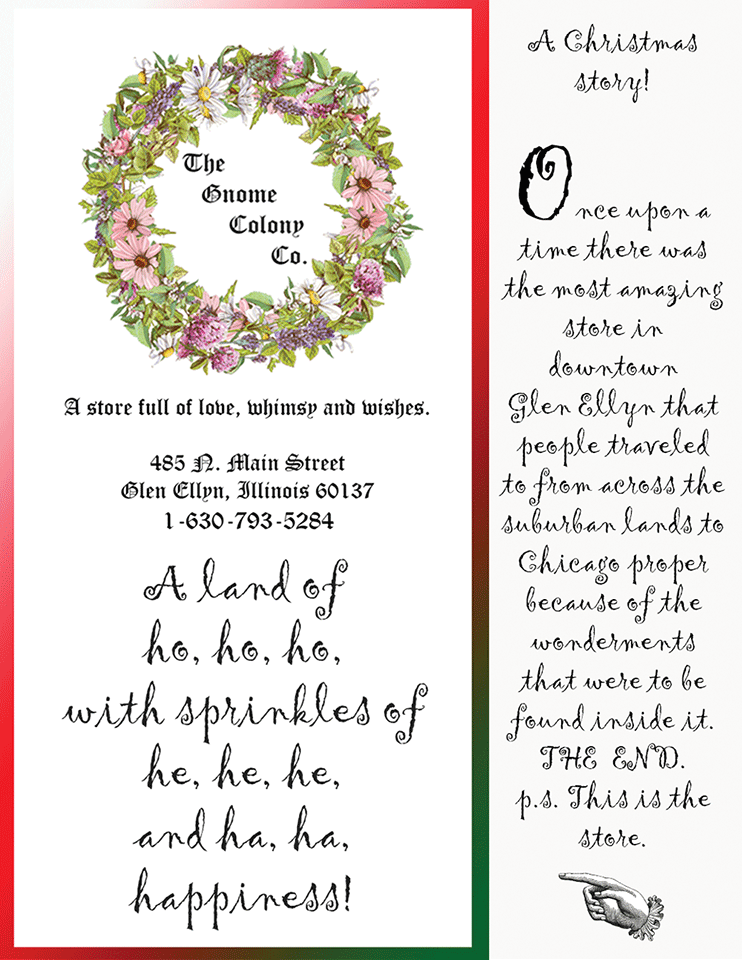 The
Gnome
Colony
Co.
A store full of love, whimsy and wishes.
485 N. Main Street
Glen Ellyn, Illinois 60137
1-630-793-5284
A land of
ho, ho, ho,
with sprinkles of
he, he, he,
and ha, ha,
happiness!
A Christmas
story!
Once upon a
time there was
the most amazing
store in
downtown
Glen Ellyn that
people traveled
to from across the
suburban lands to
Chicago proper
because of the
wonderments
that were to be
found inside it.
THE END.
p.s. This is the
store.